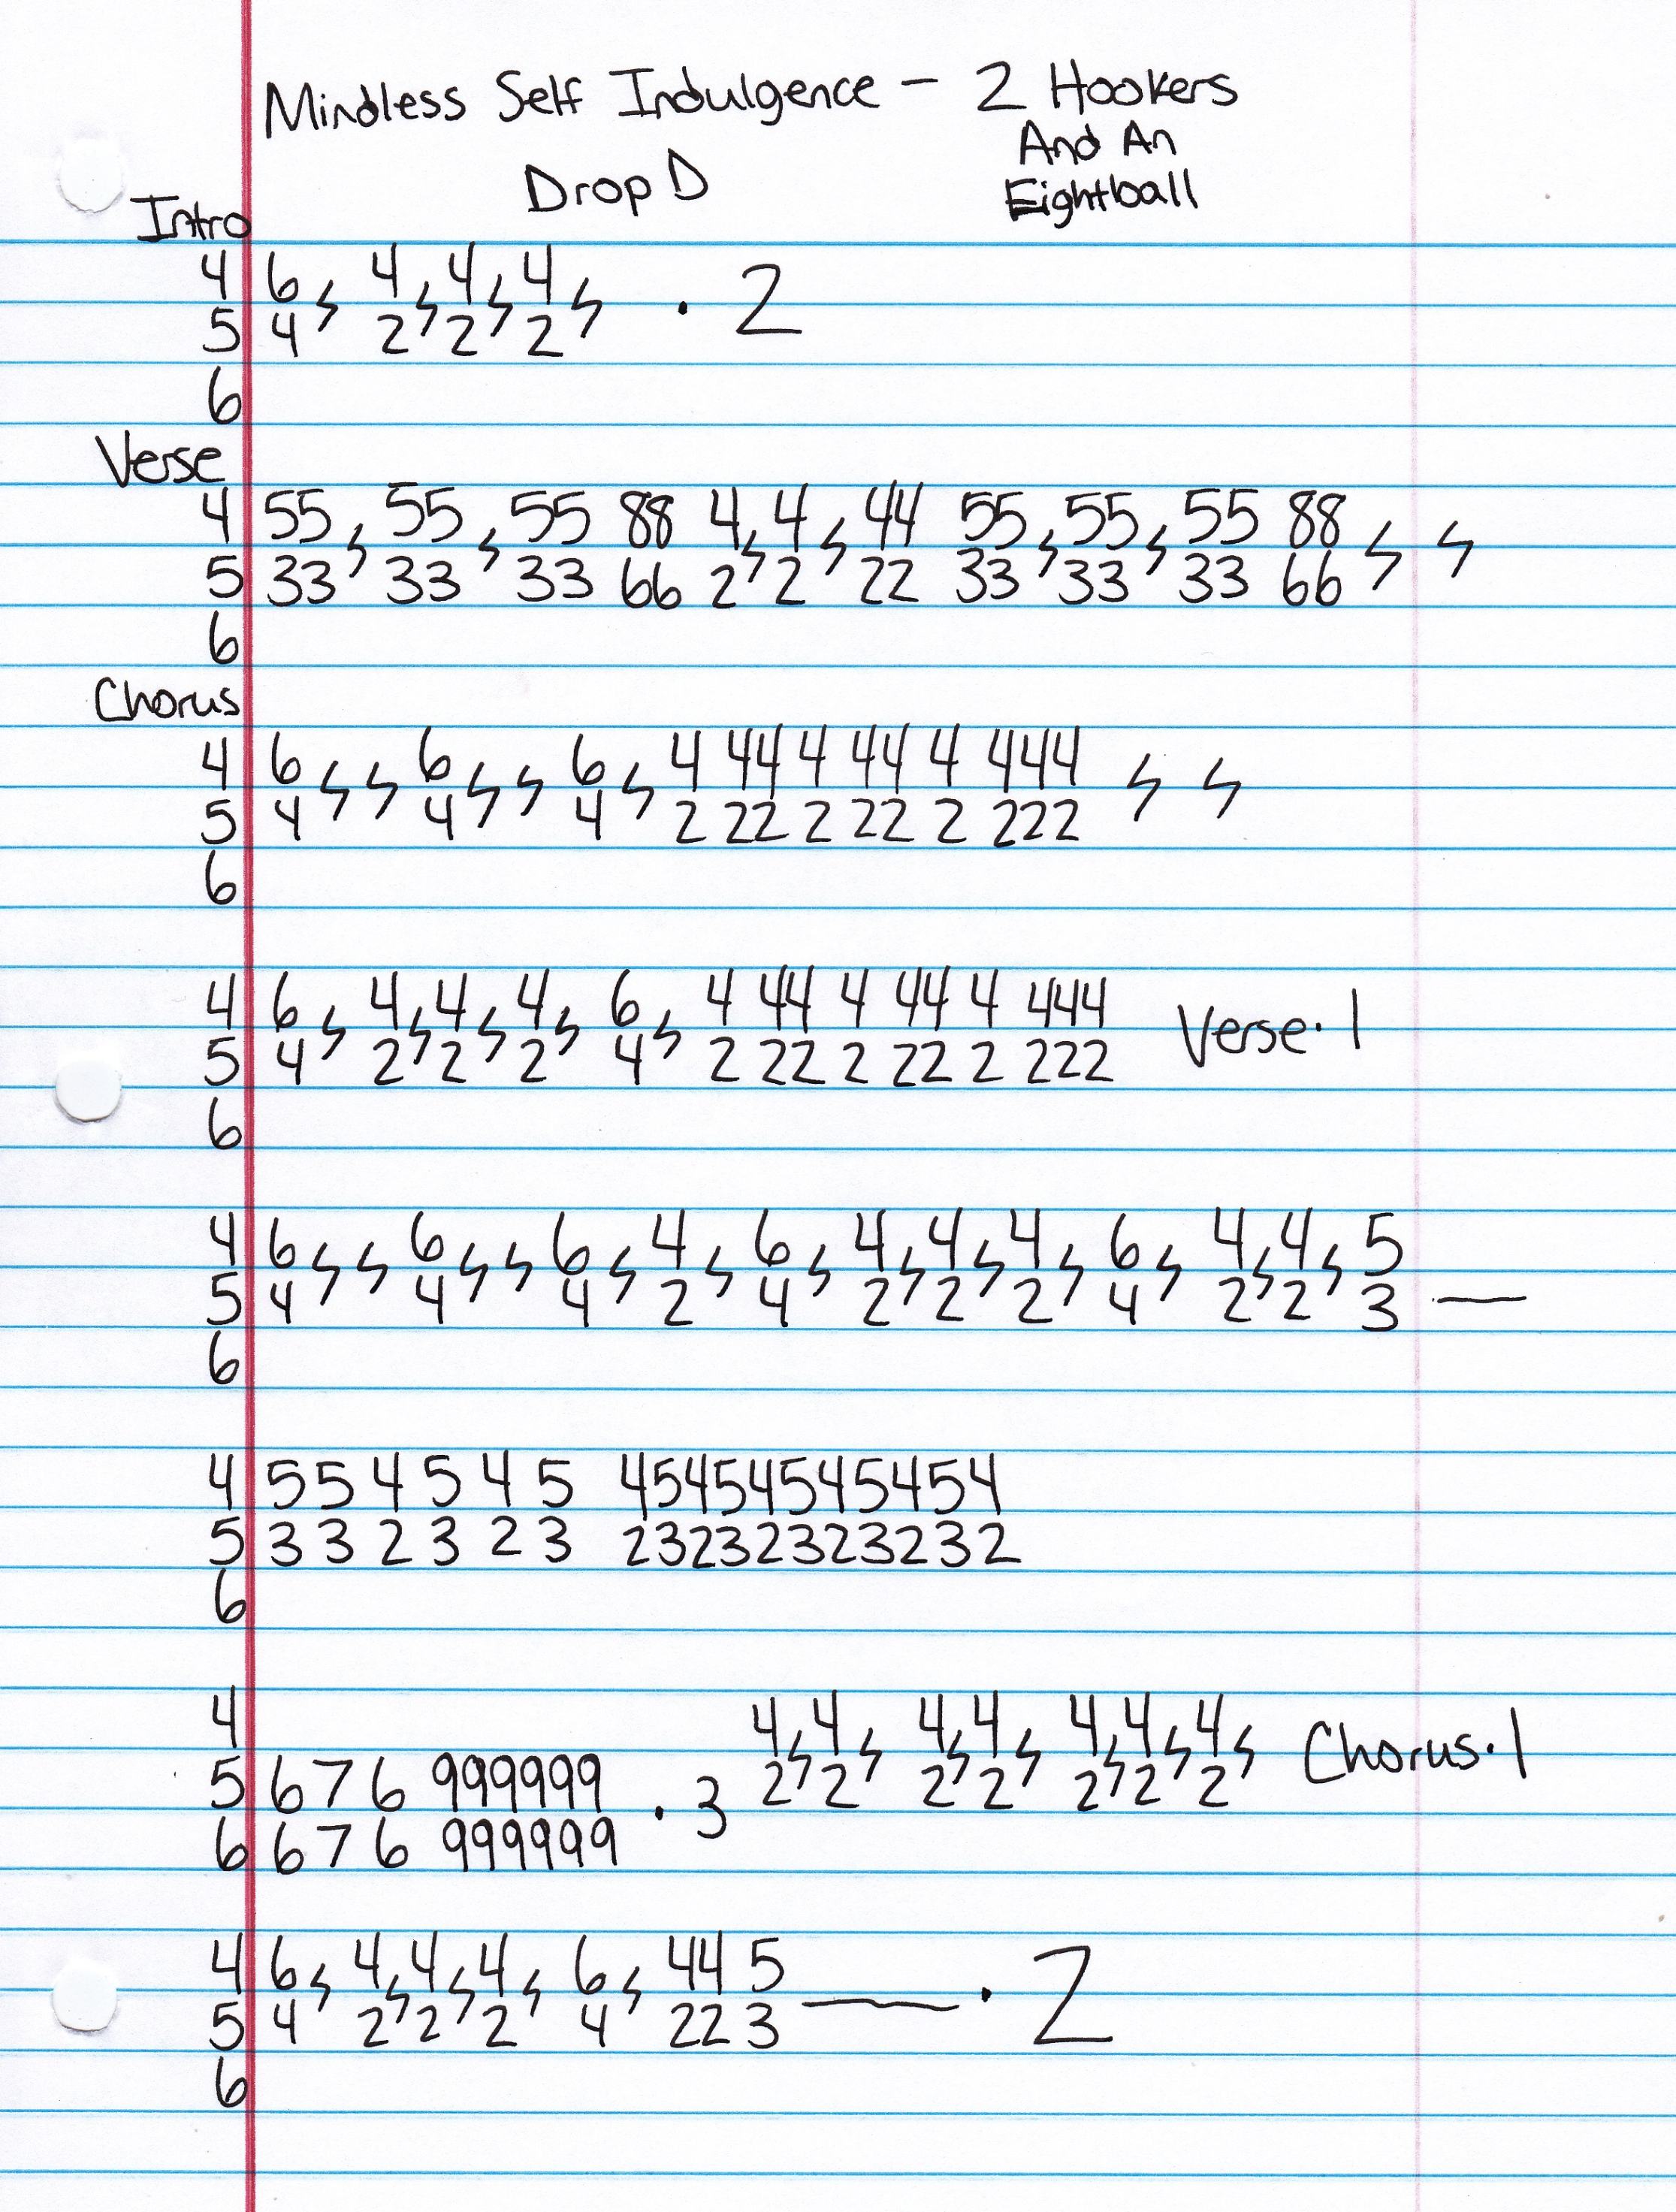 Mindless Self Indulgence - 2 Hookers
And An
Drop D Eightball
Intro
4 6 ϟ 4 ϟ 4 ϟ 4 ϟ · 2
5 4 2 2 2
6
Verse
4 55 ϟ 55 ϟ 55 88 4 ϟ 4 ϟ 44 55 ϟ 55 ϟ 55 88 ϟ ϟ
5 33 33 33 66 2 2 22 33 33 33 66
6
Chorus
4 6 ϟ ϟ 6 ϟ ϟ 6 ϟ 4 44 4 44 4 444 ϟ ϟ
5 4 4 4 2 22 2 22 2 222
6
4 6 ϟ 4 ϟ 4 ϟ 4 ϟ 6 ϟ 4 44 4 44 4 444 Verse · 1
5 4 2 2 2 4 2 22 2 22 2 222
6
4 6 ϟ ϟ 6 ϟ ϟ 6 ϟ 4 ϟ 6 ϟ 4 ϟ 4 ϟ 4 ϟ 6 ϟ 4 ϟ 4 ϟ 5
5 4 4 4 2 4 2 2 2 4 2 2 3 —
6
4 5 5 4 5 4 5 45454545454
5 3 3 2 3 2 3 23232323232
6
4 4 ϟ 4 ϟ 4 ϟ 4 ϟ 4 ϟ 4 ϟ 4 ϟ Chorus · 1
5 6 7 6 999999 · 3 2 2 2 2 2 2 2
6 6 7 6 999999
4 6 ϟ 4 ϟ 4 ϟ 4 ϟ 6 ϟ 44 5 — · 2
5 4 2 2 2 4 22 3
6